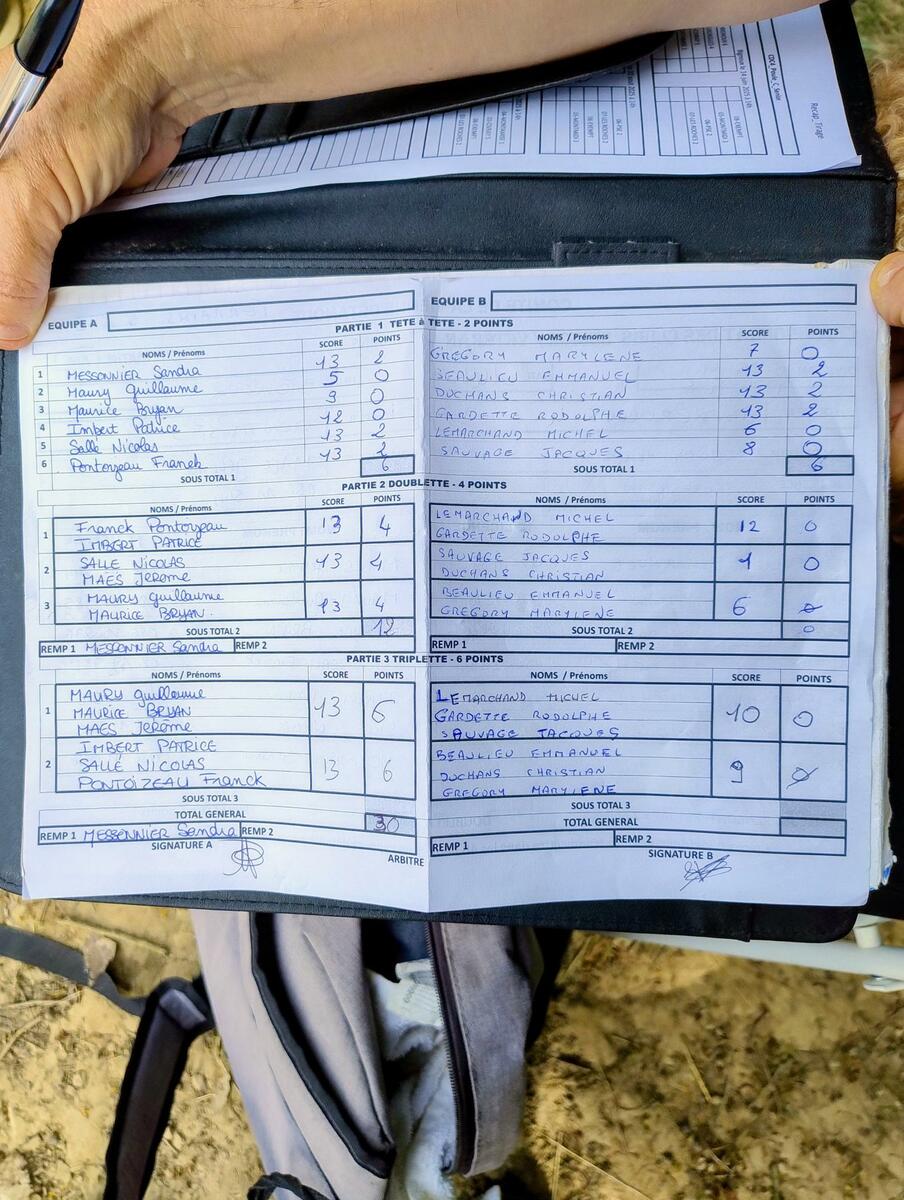 Recap_Tirage
CDC4_Poule_C_Senior
EQUIPE A
EQUIPE B
PARTIE 1 TETE à TETE - 2 POINTS
NOMS / Prénoms SCORE POINTS
1 MESSONNIER Sandra 13 2
2 Maury Guillaume 5 0
3 Maurice Bryan 9 0
4 Imbert Patrice 12 0
5 Sallé Nicolas 13 2
6 Pontoizeau Franck 13 2
SOUS TOTAL 1 6
NOMS / Prénoms SCORE POINTS
GREGORY MARYLENE 7 0
BEAULIEU EMMANUEL 13 2
DUCHANS CHRISTIAN 13 2
GARDETTE RODOLPHE 13 2
LEMARCHAND MICHEL 6 0
SAUVAGE JACQUES 8 0
SOUS TOTAL 1 6
PARTIE 2 DOUBLETTE - 4 POINTS
NOMS / Prénoms SCORE POINTS
1 Franck Pontoizeau 13 4
IMBERT PATRICE
2 SALLE NICOLAS 13 4
MAES Jerome
3 MAURY guillaume 13 4
MAURICE BRYAN.
SOUS TOTAL 2 12
REMP 1 MESSONNIER Sandra REMP 2
NOMS / Prénoms SCORE POINTS
LEMARCHAND MICHEL 12 0
GARDETTE RODOLPHE
SAUVAGE JACQUES 1 0
DUCHANS CHRISTIAN
BEAULIEU EMMANUEL 6 0
GREGORY MARYLENE
SOUS TOTAL 2 0
REMP 1 REMP 2
PARTIE 3 TRIPLETTE - 6 POINTS
NOMS / Prénoms SCORE POINTS
1 MAURY guillaume 13 6
MAURICE BRYAN
MAES Jerôme
2 IMBERT PATRICE 13 6
SALLÉ NICOLAS
PONTOIZEAU Franck
SOUS TOTAL 3
TOTAL GENERAL 30
REMP 1 MESSONNIER Sandra REMP 2
SIGNATURE A
ARBITRE
NOMS / Prénoms SCORE POINTS
LEMARCHAND MICHEL 10 0
GARDETTE RODOLPHE
SAUVAGE JACQUES
BEAULIEU EMMANUEL 9 0
DUCHANS CHRISTIAN
GREGORY MARYLENE
SOUS TOTAL 3
TOTAL GENERAL
REMP 1 REMP 2
SIGNATURE B